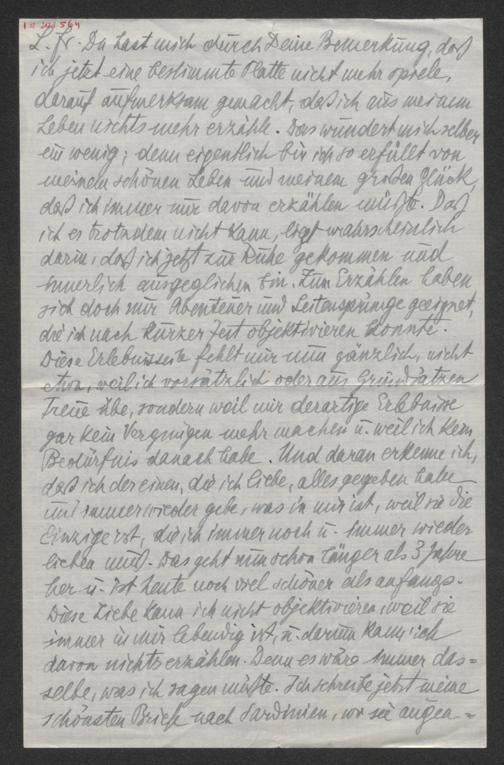 L. Fr. Du hast mich durch Deine Bemerkung, daß
ich jetzt eine bestimmte Platte nicht mehr spiele,
darauf aufmerksam gemacht, daß ich aus meinem
Leben nichts mehr erzähle. Das wundert mich selber
ein wenig; denn eigentlich bin ich so erfüllt von
meinem schönen Leben und meinem großen Glück,
daß ich immer nur davon erzählen müßte. Daß
ich es trotzdem nicht kann, liegt wahrscheinlich
darin, daß ich jetzt zur Ruhe gekommen und
innerlich ausgeglichen bin. Zum Erzählen haben
sich doch nur Abenteuer und Seitensprünge geeignet,
die ich nach kurzer Zeit objektivieren konnte.
Diese Erlebnisseite fehlt mir nun gänzlich, nicht
etwa, weil ich vorsätzlich oder aus Grundsätzen
Treue übe, sondern weil mir derartige Erlebnisse
gar kein Vergnügen mehr machen u. weil ich kein
Bedürfnis danach habe. Und daran erkenne ich,
daß ich der einen, die ich liebe, alles gegeben habe
und immer wieder gebe, was in mir ist, weil sie die
Einzige ist, die ich immer noch u. immer wieder
lieben muß. Das geht nun schon länger als 3 Jahre
her u. ist heute noch viel schöner als anfangs.
Diese Liebe kann ich nicht objektivieren, weil sie
immer in mir lebendig ist, u. darum kann ich
davon nichts erzählen. Denn es wäre immer das=
selbe, was ich sagen müßte. Ich schreibe jetzt meine
schönsten Briefe nach Sardinien, wo sie augen=